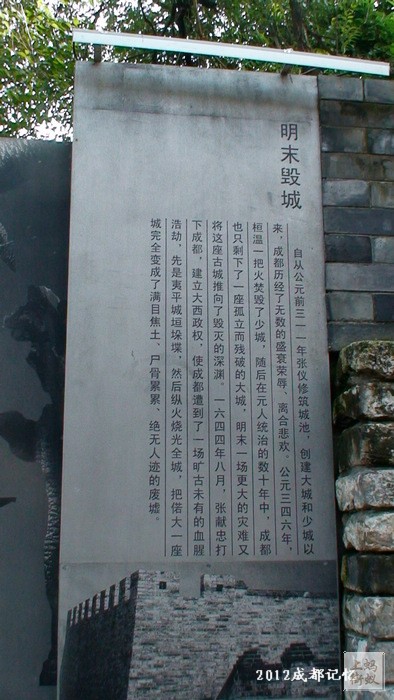 明末毁城
自从公元前三一一年张仪修筑城池，创建大城和少城以
来，成都历经了无数的盛衰荣辱、离合悲欢。公元三四六年，
桓温一把火焚毁了少城，随后在元人统治的数十年中，成都
也只剩下了一座孤立而残破的大城，明末一场更大的灾难又
将这座古城推向了毁灭的深渊。一六四四年八月，张献忠打
下成都，建立大西政权，使成都遭到了一场旷古未有的血腥
浩劫，先是夷平城垣垛堞，然后纵火烧光全城，把偌大一座
城完全变成了满目焦土、尸骨累累、绝无人迹的废墟。
2012成都记忆